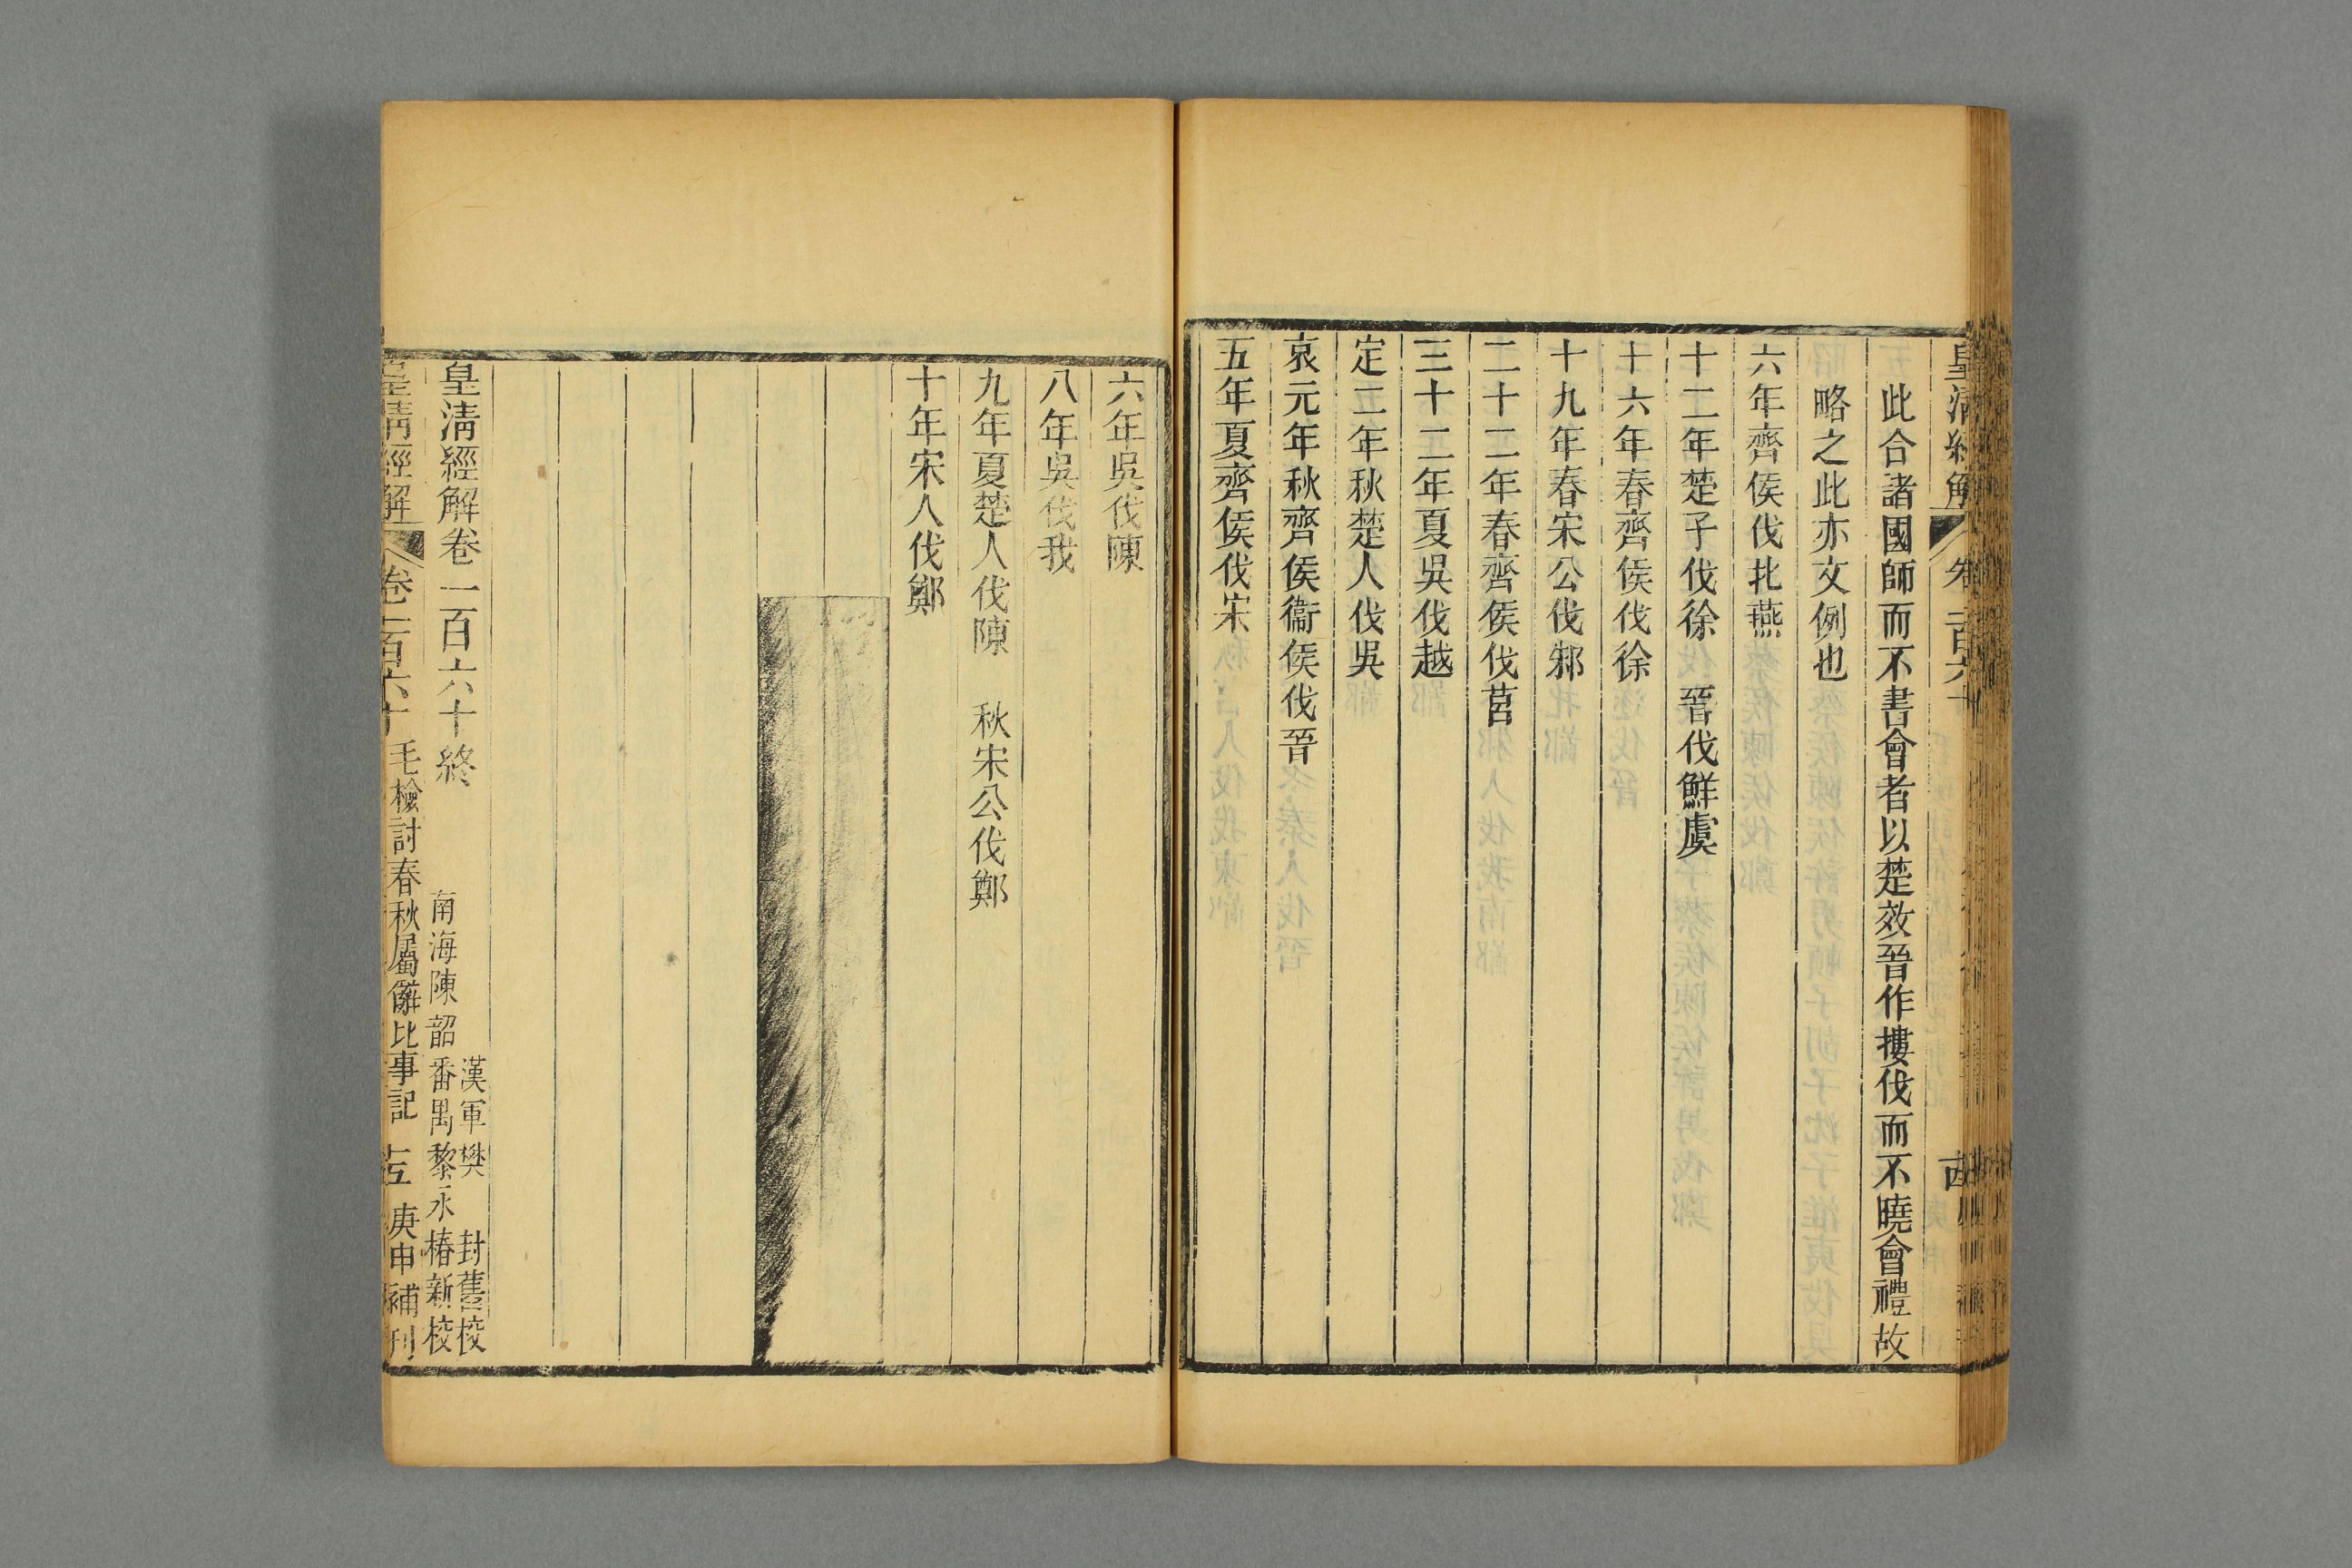 皇清經解 卷一百六十
此合諸國師而不書會者以楚效晉作摟伐而不曉會禮故
略之此亦文例也
六年齊侯伐北燕
十二年楚子伐徐 晉伐鮮虞
十六年春齊侯伐徐
十九年春宋公伐邾
二十二年春齊侯伐莒
三十二年夏吳伐越
定二年秋楚人伐吳
哀元年秋齊侯衞侯伐晉
五年夏齊侯伐宋
六年吳伐陳
八年吳伐我
九年夏楚人伐陳 秋宋公伐鄭
十年宋人伐鄭
皇清經解卷一百六十終
漢軍樊 封舊校
南海陳韶番禺黎永椿新校
皇清經解 卷一百六十 毛檢討春秋屬辭比事記 十五 庚申補刊